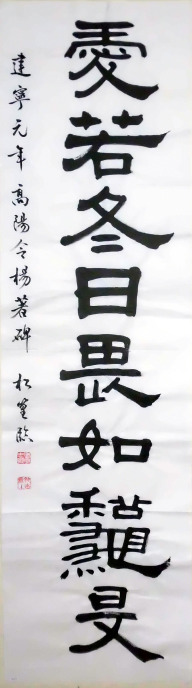 愛若冬日畏如龝旻
建寧元年 高陽令楊著碑 松臨